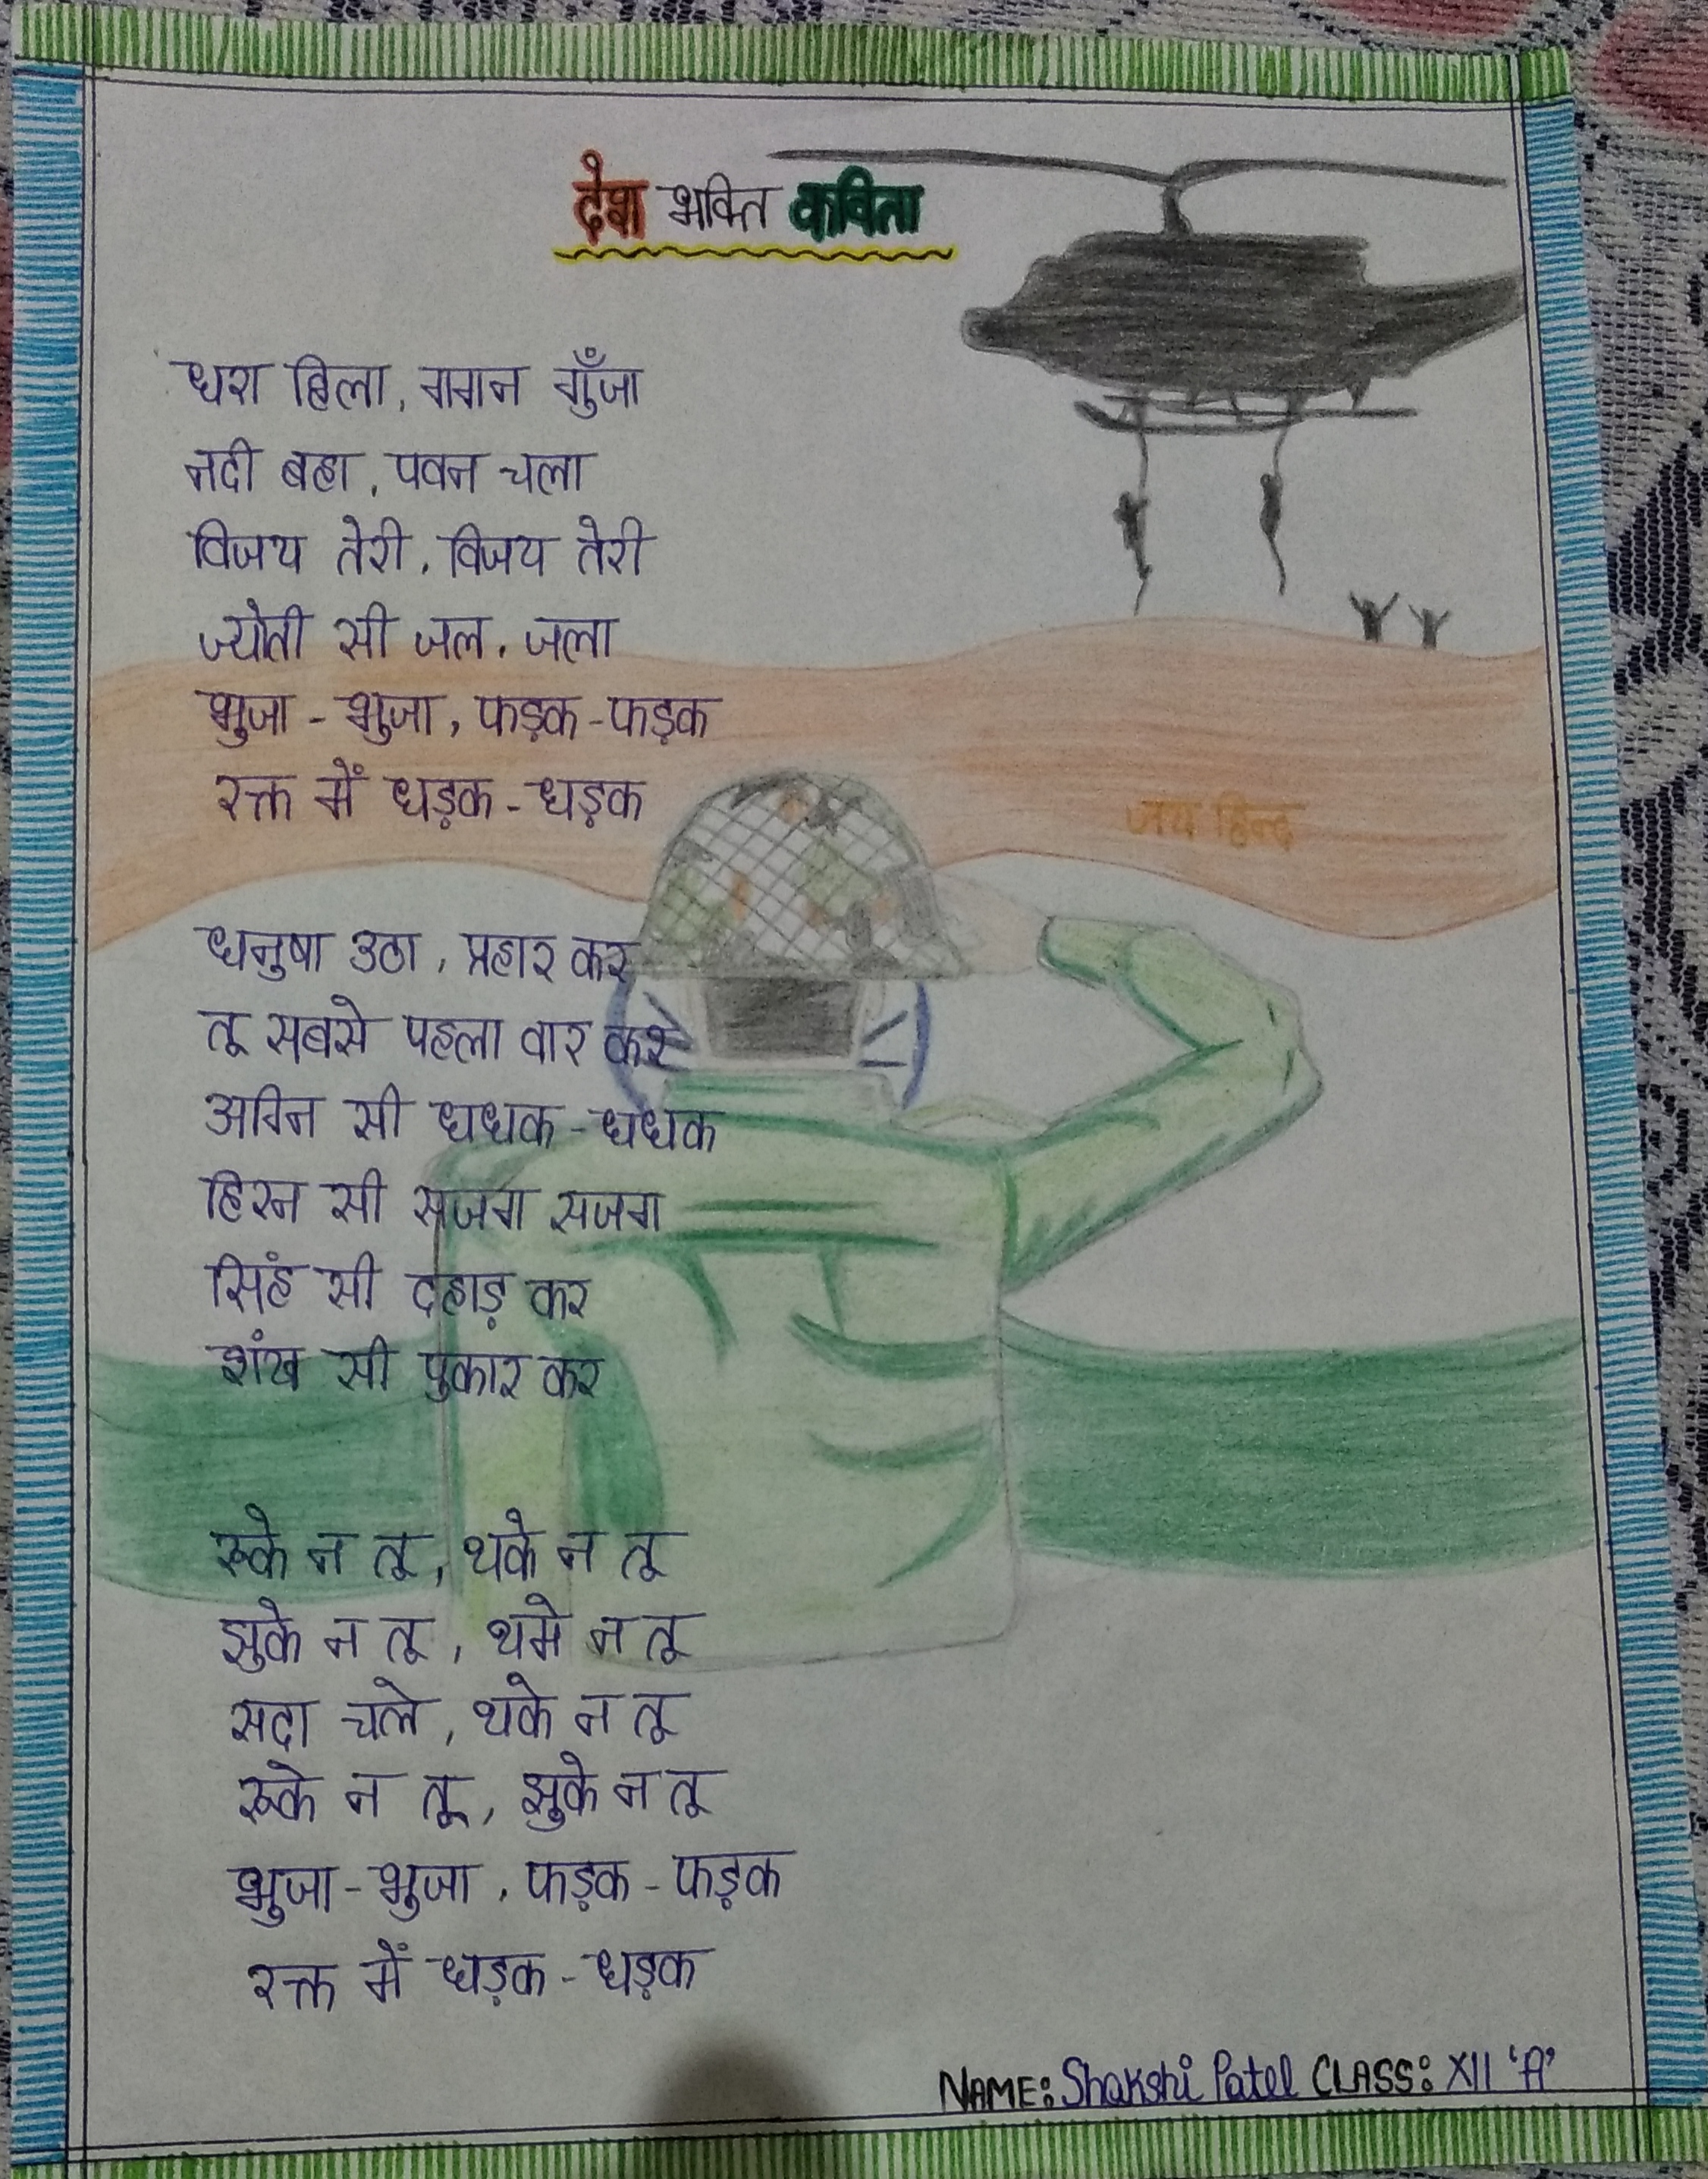 देश भक्ति कविता
धरा हिला, गगन गुँजा
नदी बहा, पवन चला
विजय तेरी, विजय तेरी
ज्योती सी जल, जला
भुजा - भुजा, फड़क - फड़क
रक्त में धड़क - धड़क
जय हिन्द
धनुषा उठा, प्रहार कर
तू सबसे पहला वार कर
अग्नि सी धधक - धधक
हिरन सी सजग सजग
सिंह सी दहाड़ कर
शंख सी पुकार कर
रूके न तू, थके न तू
झुके न तू, थमे न तू
सदा चले, थके न तू
रूके न तू, झुके न तू
भुजा - भुजा, फड़क - फड़क
रक्त में धड़क - धड़क
NAME: Shakshi Patel CLASS: XII 'A'